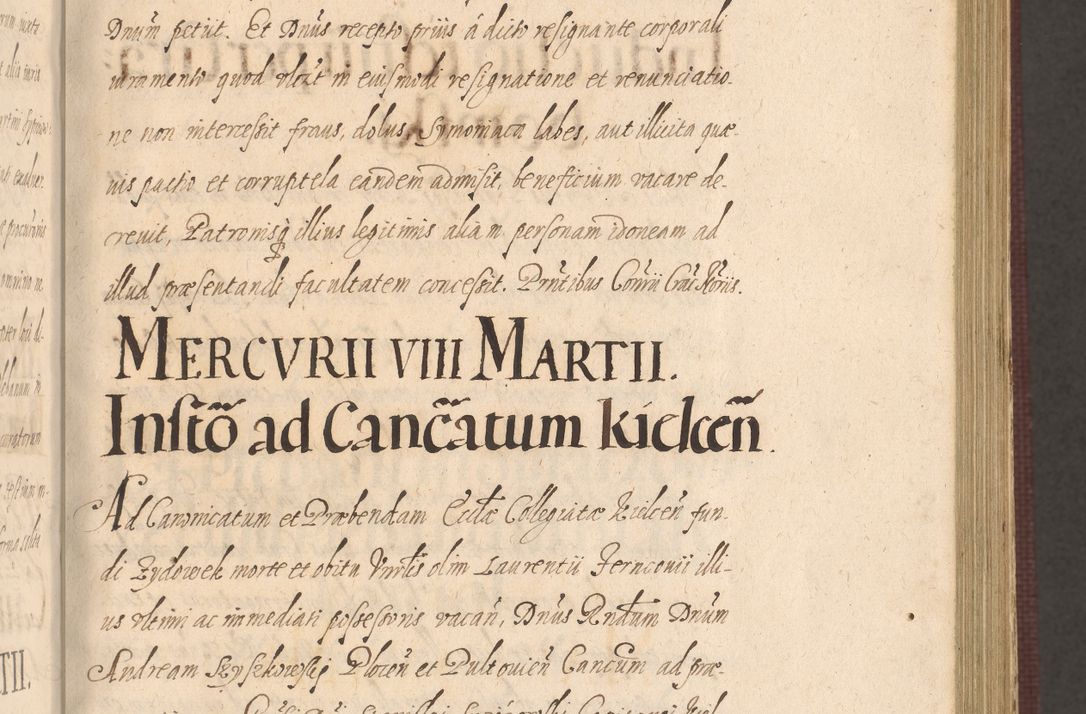 Dnum petiit. Et Dnus recepto prius á dicto resignante corporali
iuramento quod vtt in eiusmodi resignatione et renunciatio-
ne non intercessit fraus, dolus, Symoniaca labes, aut illicita quæ-
uis pactio et corruptela eandem admisit, beneficium vacare de-
creuit, Patronisq illius legitimis aliam personam idoneam ad
illud præsentandi facultatem concessit. Pntibus
MERCVRII VIII MARTII.
Instõ ad Canc̃atum kielceñ.
Ad Canonicatum et Præbendam Eccłæ Collegiatæ Kielceñ fun-
di Zydowek morte et obitu olim Laurentii illi-
us vltimi ac immediati possessoris vacañ, Dnus Rndum Dnum
Andream Szyszkowskj Ploceñ et Pultouieñ Cancum ad præ-